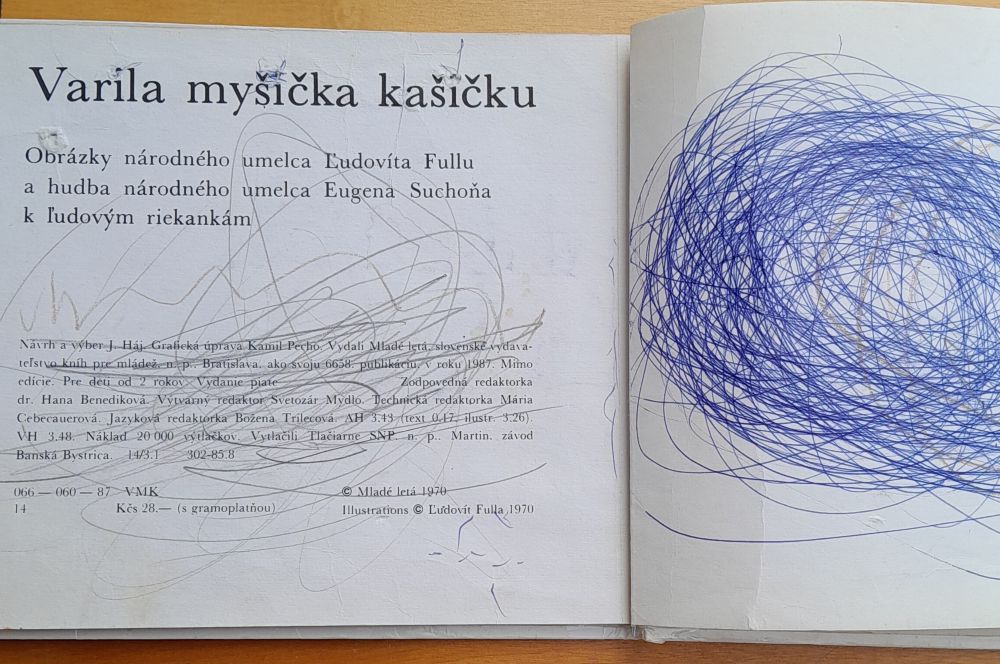 Varila myšička kašičku
Obrázky národného umelca Ľudovíta Fullu
a hudba národného umelca Eugena Suchoňa
k ľudovým riekankám
Návrh a výber J. Háj. Grafická úprava Kamil Pecho. Vydali Mladé letá, slovenské vydava-
teľstvo kníh pre mládež, n. p., Bratislava, ako svoju 6658. publikáciu, v roku 1987. Mimo
edície. Pre deti od 2 rokov. Vydanie piate. Zodpovedná redaktorka
dr. Hana Benediková. Výtvarný redaktor Svetozár Mydlo. Technická redaktorka Mária
Cebecauerová. Jazyková redaktorka Božena Trilecová. AH 3.43 (text 0.17, ilustr. 3.26).
VH 3.48. Náklad 20 000 výtlačkov. Vytlačili Tlačiarne SNP, n. p., Martin, závod
Banská Bystrica. 14/3.1 302-85.8
066 — 060 — 87 VMK © Mladé letá 1970
14 Kčs 28.— (s gramoplatňou) Illustrations © Ľudovít Fulla 1970